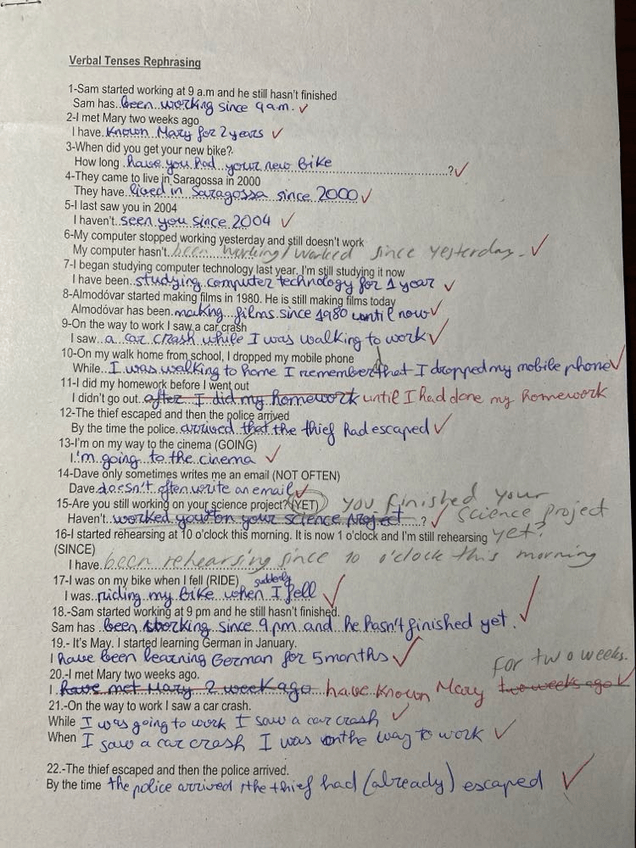 Verbal Tenses Rephrasing
1-Sam started working at 9 a.m and he still hasn't finished
Sam has..been..working since 9am. ✓
2-I met Mary two weeks ago
I have.known Mary for 2 years ✓
3-When did you get your new bike?
How long .have you had your new bike ...........?✓
4-They came to live in Saragossa in 2000
They have.lived in Saragossa since 2000 ✓
5-I last saw you in 2004
I haven't.seen you since 2004 ✓
6-My computer stopped working yesterday and still doesn't work
My computer hasn't.been working/worked since yesterday. ✓
7-I began studying computer technology last year. I'm still studying it now
I have been..studying computer technology for 1 year ✓
8-Almodóvar started making films in 1980. He is still making films today
Almodóvar has been.making films since 1980 until now ✓
9-On the way to work I saw a car crash
I saw..a car crash while I was walking to work ✓
10-On my walk home from school, I dropped my mobile phone
While..I was walking to home I remembered that I dropped my mobile phone ✓
11-I did my homework before I went out
I didn't go out..after I did my homework until I had done my homework
12-The thief escaped and then the police arrived
By the time the police..arrived that the thief had escaped ✓
13-I'm on my way to the cinema (GOING)
I.'m going to the cinema ✓
14-Dave only sometimes writes me an email (NOT OFTEN)
Dave doesn't often write an email ✓
15-Are you still working on your science project? (YET) you finished your
Haven't..worked your on your science project...? ✓ science project
16-I started rehearsing at 10 o'clock this morning. It is now 1 o'clock and I'm still rehearsing yet?
(SINCE)
I have.been rehearsing since 10 o'clock this morning
17-I was on my bike when I fell (RIDE) suddenly
I was..riding my bike when I fell ✓
18.-Sam started working at 9 pm and he still hasn't finished.
Sam has been working since 9pm and he hasn't finished yet. ✓
19.- It's May. I started learning German in January.
I have been learning German for 5 months ✓
20.-I met Mary two weeks ago. for two weeks.
I .have met Mary 2 week ago have known Mary two weeks ago
21.-On the way to work I saw a car crash.
While I was going to work I saw a car crash ✓
When I saw a car crash I was on the way to work ✓
22.-The thief escaped and then the police arrived.
By the time the police arrived the thief had (already) escaped ✓